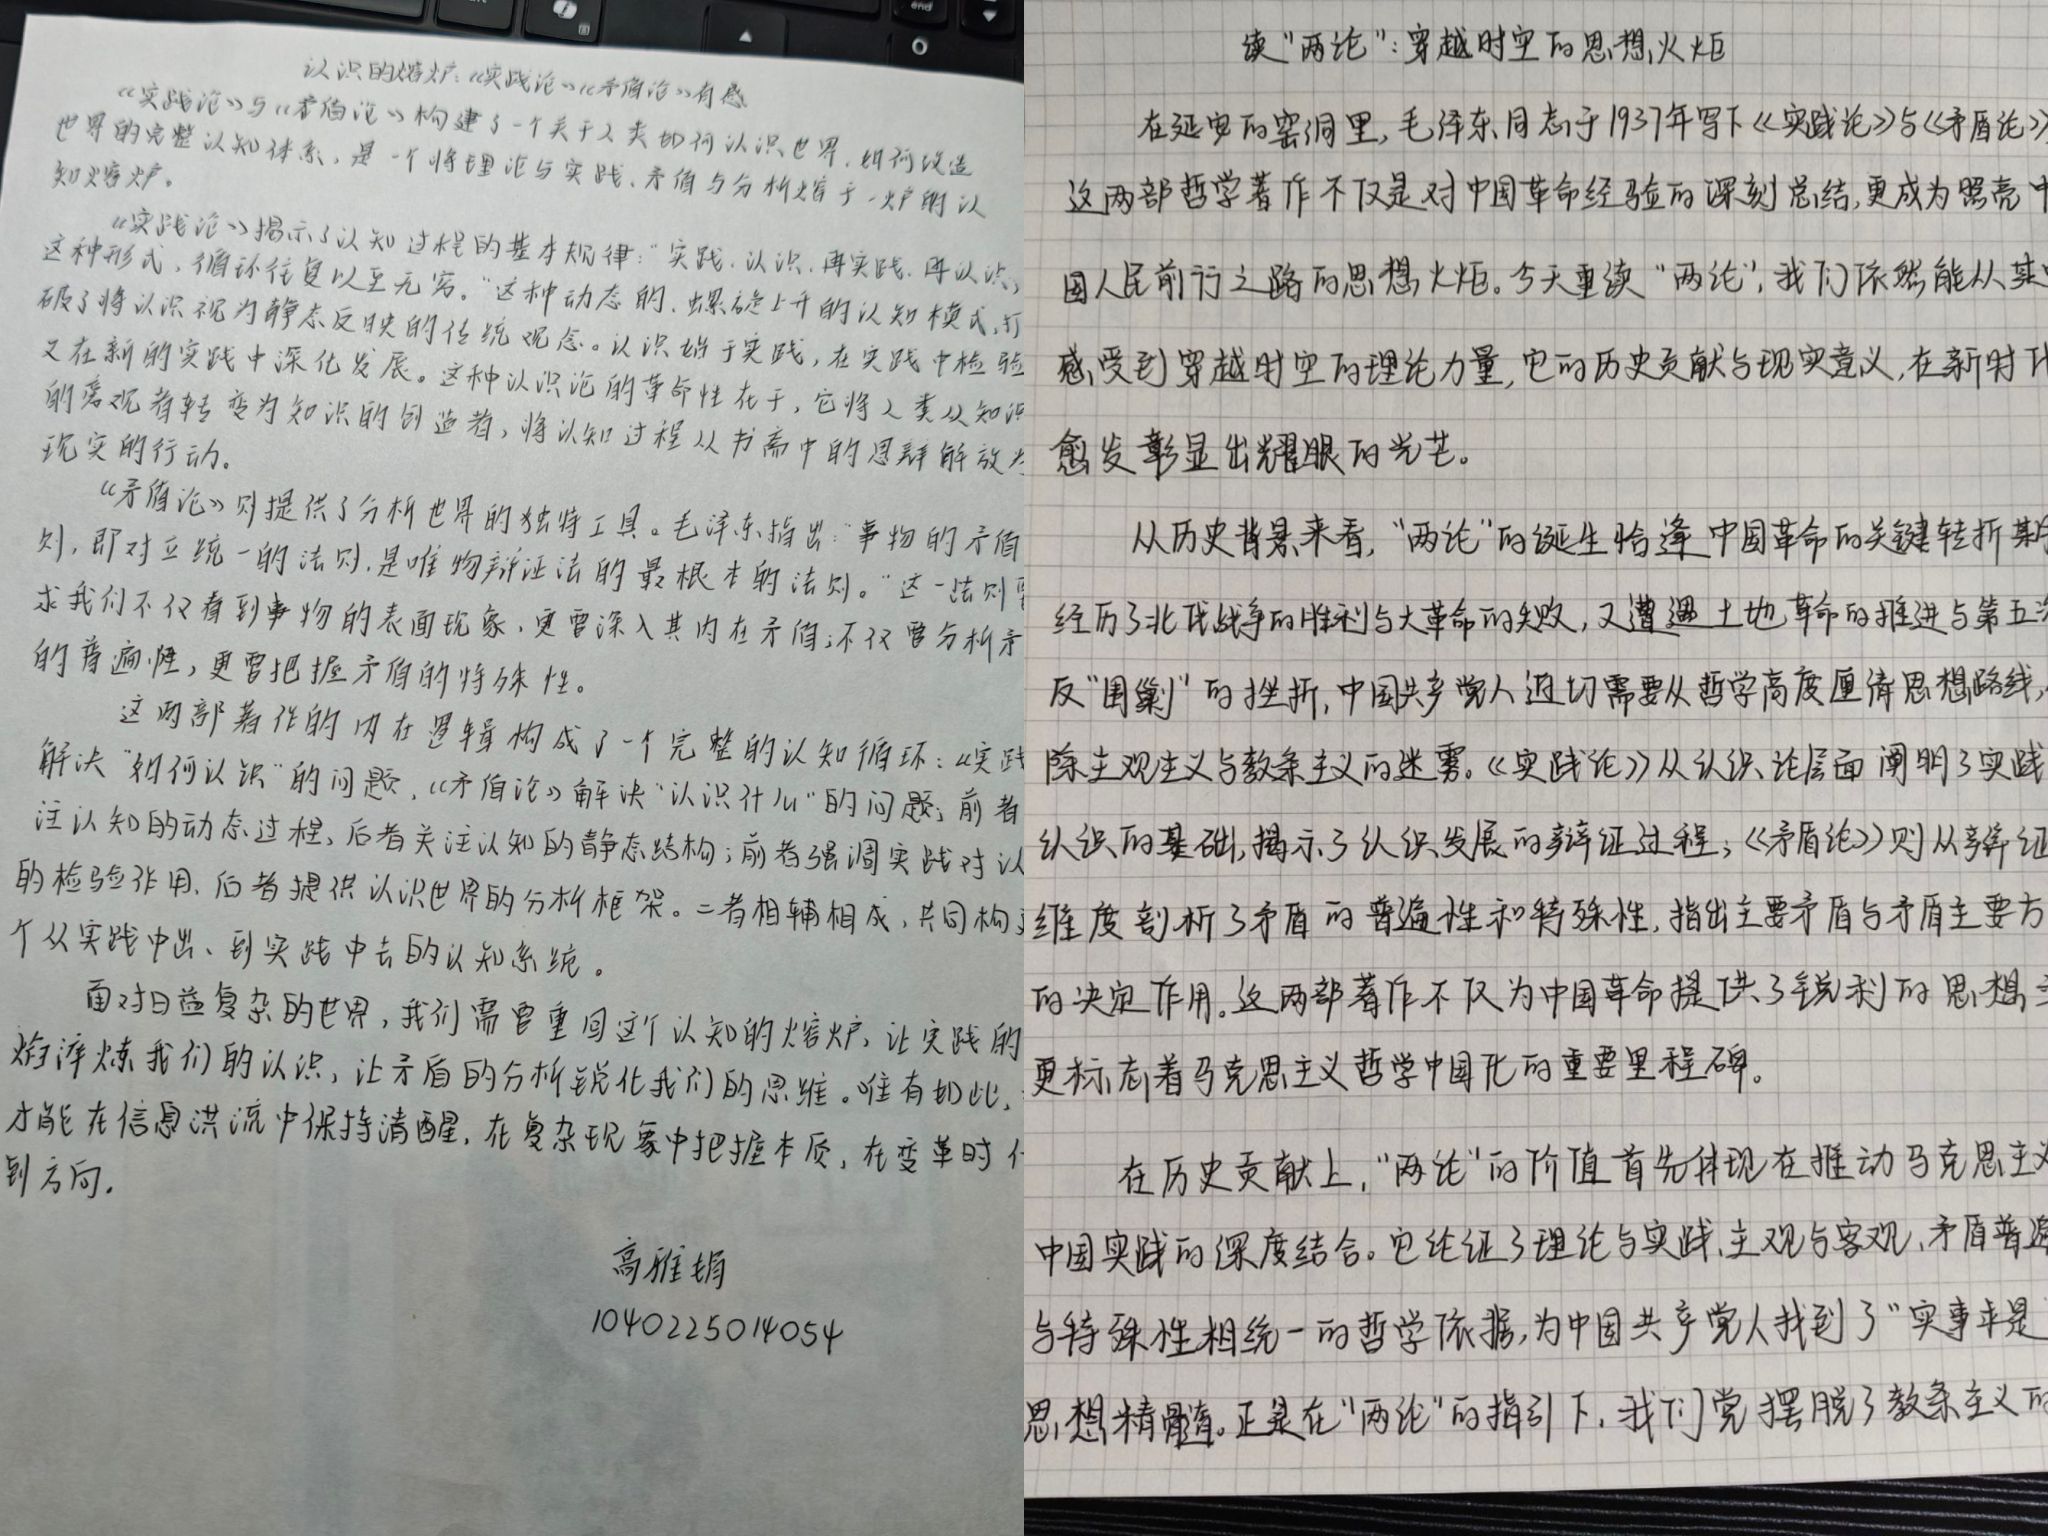 认识的熔炉：《实践论》《矛盾论》有感
《实践论》与《矛盾论》构建了一个关于人类如何认识世界、如何改造
世界的完整认知体系，是一个将理论与实践、矛盾与分析熔于一炉的认
知熔炉。
《实践论》揭示了认知过程的基本规律："实践、认识、再实践、再认识，
这种形式，循环往复以至无穷。"这种动态的、螺旋上升的认知模式，打
破了将认识视为静态反映的传统观念。认识始于实践，在实践中检验
又在新的实践中深化发展。这种认识论的革命性在于，它将人类从知识
的旁观者转变为知识的创造者，将认知过程从书斋中的思辩解放为
现实的行动。
《矛盾论》则提供了分析世界的独特工具。毛泽东指出："事物的矛盾
则，即对立统一的法则，是唯物辩证法的最根本的法则。"这一法则要
求我们不仅看到事物的表面现象，更需深入其内在矛盾；不仅要分析矛
的普遍性，更要把握矛盾的特殊性。
这两部著作的内在逻辑构成了一个完整的认知循环：《实践
解决"如何认识"的问题，《矛盾论》解决"认识什么"的问题；前者
注认知的动态过程，后者关注认知的静态结构；前者强调实践对认
的检验作用，后者提供认识世界的分析框架。二者相辅相成，共同构
个从实践中出、到实践中去的认知系统。
面对日益复杂的世界，我们需要重回这个认知的熔炉，让实践的
焰淬炼我们的认识，让矛盾的分析锐化我们的思维。唯有如此，
才能在信息洪流中保持清醒，在复杂现象中把握本质，在变革时代
到方向。
高雅娟
1040225014054
读"两论"：穿越时空的思想火炬
在延安的窑洞里，毛泽东同志于1937年写下《实践论》与《矛盾论》
这两部哲学著作不仅是对中国革命经验的深刻总结，更成为照亮中
国人民前行之路的思想火炬。今天重读"两论"，我们依然能从其中
感受到穿越时空的理论力量，它的历史贡献与现实意义，在新时代
愈发彰显出耀眼的光芒。
从历史背景来看，"两论"的诞生恰逢中国革命的关键转折期
经历了北伐战争的胜利与大革命的失败，又遭遇土地革命的推进与第五次
反"围剿"的挫折，中国共产党人迫切需要从哲学高度厘清思想路线，
除主观主义与教条主义的迷雾。《实践论》从认识论层面阐明了实践
认识的基础，揭示了认识发展的辩证过程；《矛盾论》则从辩证
维度剖析了矛盾的普遍性和特殊性，指出主要矛盾与矛盾主要方
的决定作用。这两部著作不仅为中国革命提供了锐利的思想
更标志着马克思主义哲学中国化的重要里程碑。
在历史贡献上，"两论"的价值首先体现在推动马克思主义
中国实践的深度结合。它论证了理论与实践、主观与客观、矛盾普遍
与特殊性相统一的哲学依据，为中国共产党人找到了"实事求是
思想精髓。正是在"两论"的指引下，我们党摆脱了教条主义的